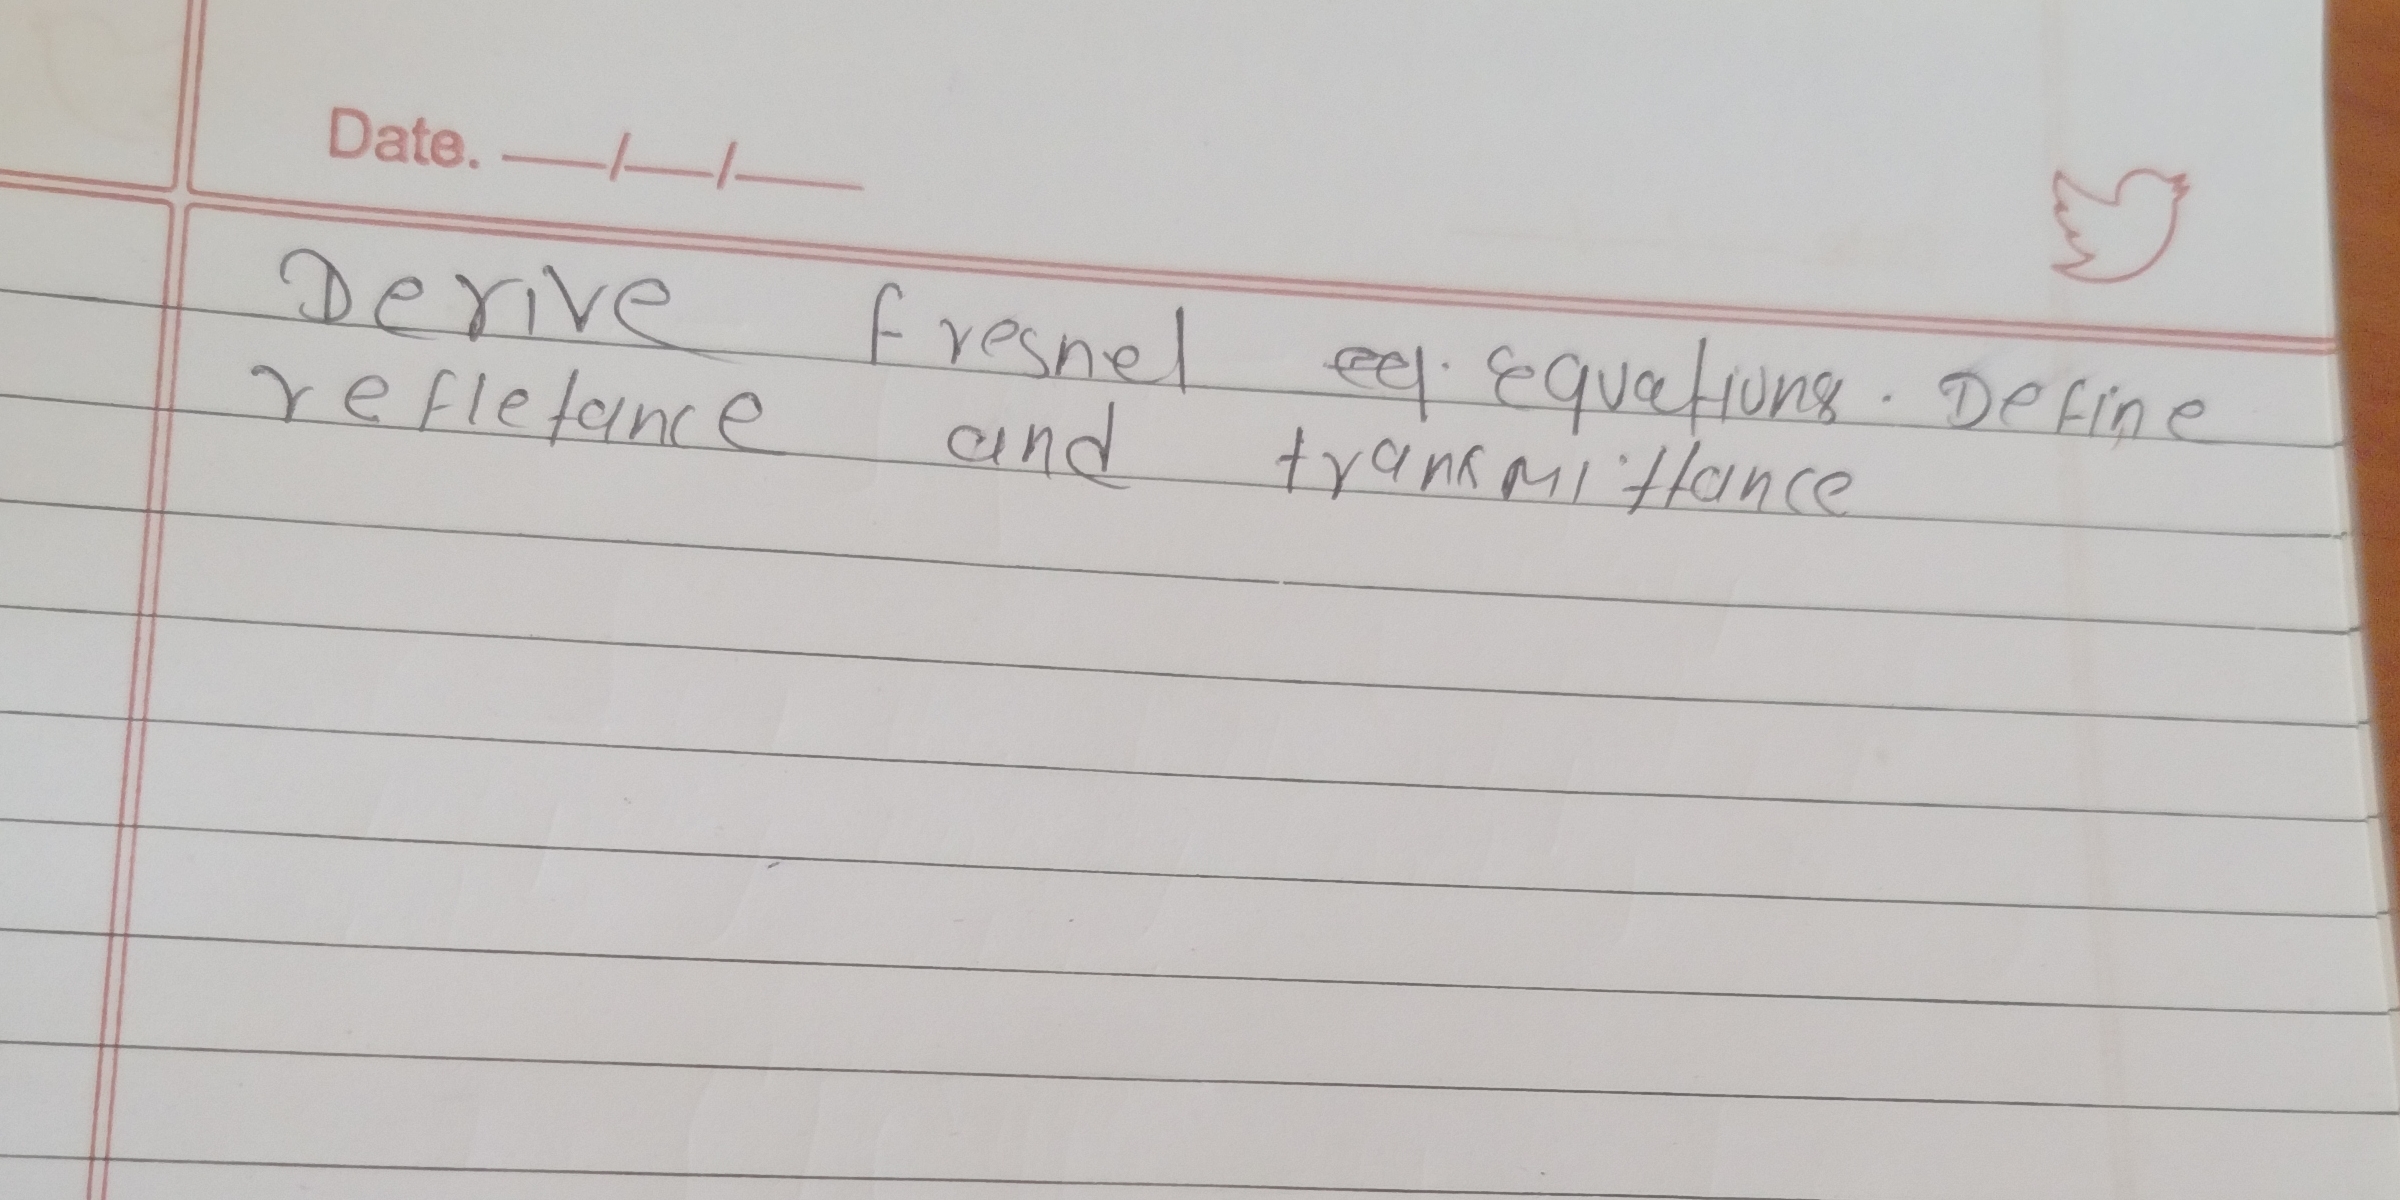 Date. __/__/__
Derive fresnel eq. Equations. Define
refletance and transmittance